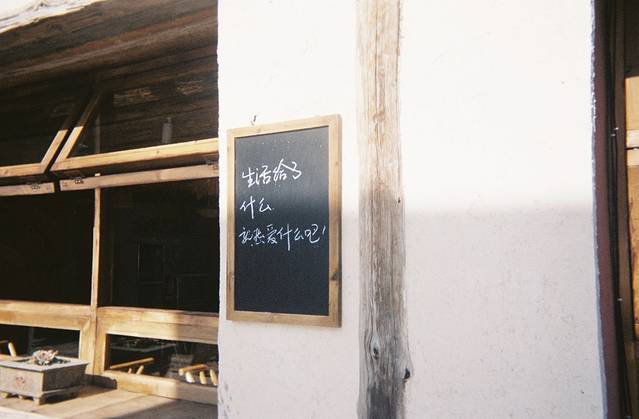 生活给了
什么
就热爱什么吧！